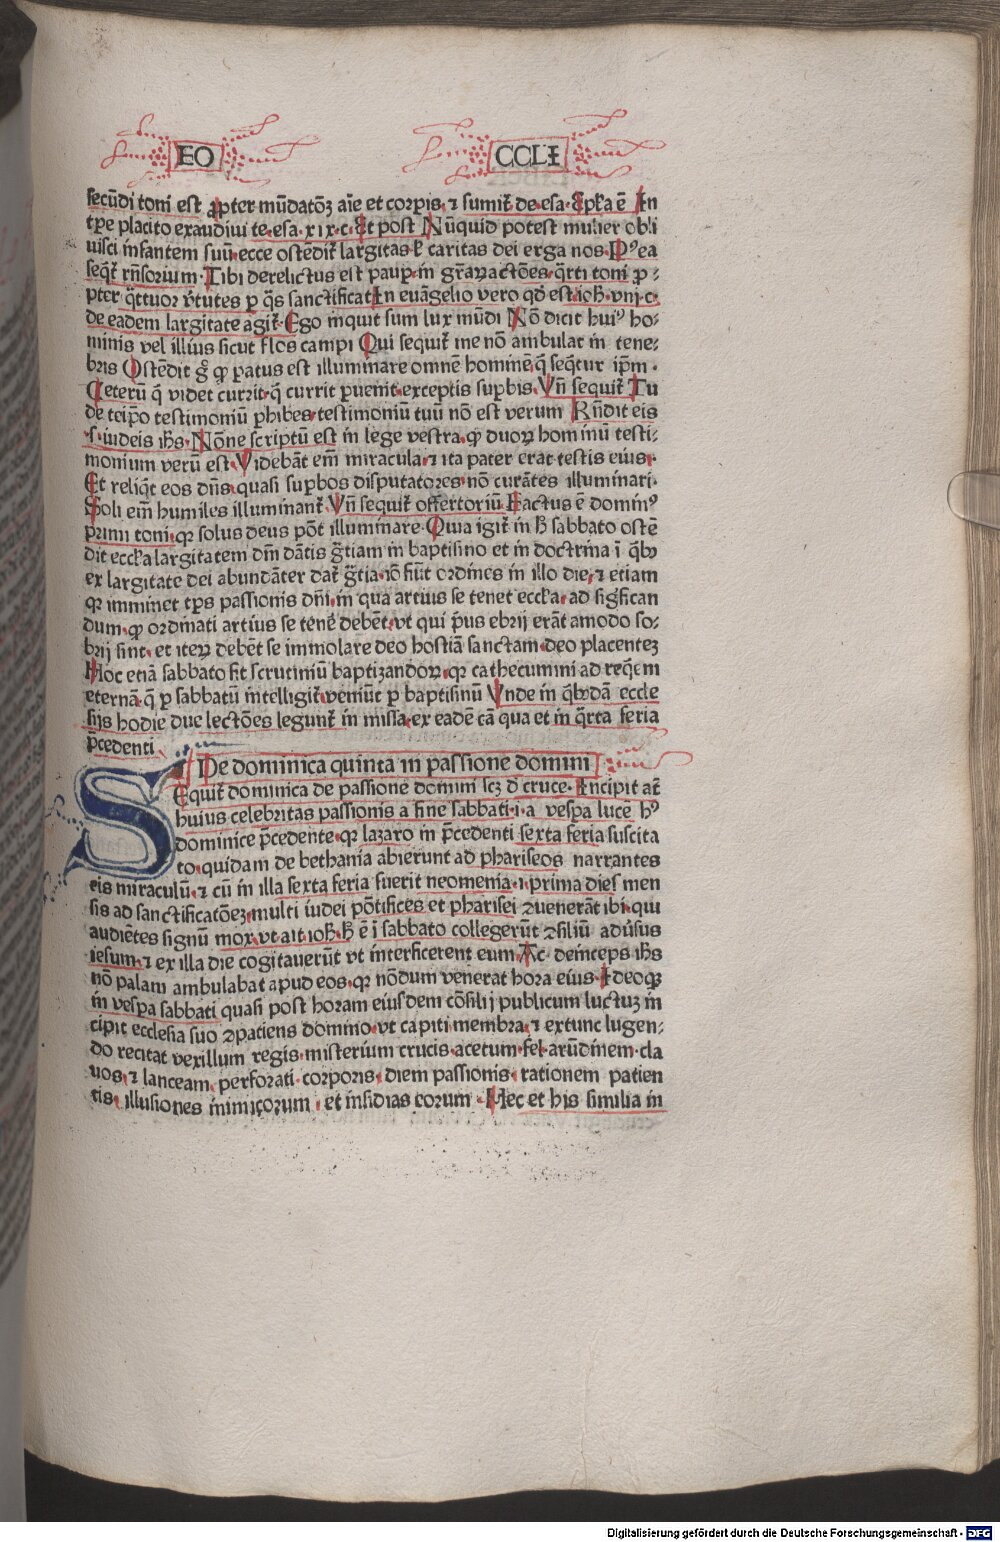 EO CCLI
secūdi toni est ꝓpter mūdatōꝫ aīe et corꝑis· ⁊ sumit̄ de esa· Epl̄a ē In
tp̄e placito exaudiui te·esa·xix·c· Et post Nūquid potest mulier obli
uisci infantem suū· ecce ostēdit̄ largitas ⁊ caritas dei erga nos· Pꝰea
seqt̄ rn̄sorium· Tibi derelictus est paup· in gr̄aꝝactōes· qrti toni ꝓ⸗
pter qttuor v̄tutes ꝑ qs sanctificat In euāgelio vero qd̄ est ioh̄· viij·c·
de eadem largitate agit̄· Ego inquit sum lux mūdi Nō dicit huiꝰ ho⸗
minis vel illius sicut flos campi Qui sequit̄ me nō ambulat in tene⸗
bris Ostēdit g̊ ꝙ ꝑatus est illuminare omnē hominē· q̄ seqtur ip̄m·
Ceterū q̄ videt currit· q̄ currit ꝑuenit· exceptis suꝑbis· Vn̄ sequit̄ Tu
de teip̄o testimoniū ꝑhibes· testimoniū tuū nō est verum Rn̄dit eis
·s·iudeis ih̄s· Nōne scriptū est in lege vestra· ꝙ duoꝝ hominū testi⸗
monium verū est· Videbāt em̄ miracula· ⁊ ita pater erat testis eius·
Et reliqt eos dn̄s· quasi suꝑbos disputatores· nō curātes illuminari·
Soli em̄ humiles illuminant̄· Vn̄ sequit̄ offertoriū· Factus ē dominꝰ
primi toni· qꝛ solus deus pōt illuminare· Quia igit̄ in h̄ sabbato ostē
dit eccl̄ia largitatem dn̄i dātis gr̄tiam in baptismo et in doctrina ī qbꝰ
ex largitate dei abundāter dat̄ gr̄tia· iō fiūt ordines in illo die· ⁊ etiam
qꝛ imminet tp̄s passionis dn̄i· in qua artius se tenet eccl̄ia· ad significan
dum· ꝙ ordinati artius se tenē debēt· vt qui pͥus ebrij erāt amodo so⸗
brij sint· et iteꝝ debēt se immolare deo hostiā sanctam· deo placentez
Hoc etiā sabbato fit scrutiniū baptizandoꝝ· qꝛ cathecumini ad reqem
eternā· q̄ ꝑ sabbatū intelligit̄· veniūt ꝑ baptismū Vnde in qbꝰdā eccle
sijs hodie due lectōes legunt̄ in missa· ex eadē cā qua et in qrta feria
p̄cedenti
De dominica quinta in passione domini
SEquit̄ dominica de passione domini scꝫ d̄ cruce· Incipit at̄
huius celebritas passionis a fine sabbati·i·a vesꝑa lucē hꝰ
dominice p̄cedente· qꝛ lazaro in p̄cedenti sexta feria suscita
to· quidam de bethania abierunt ad phariseos narrantes
eis miraculū· ⁊ cū in illa sexta feria fuerit neomenia·i·prima dies men
sis ad sanctificatōeꝫ· multi iudei pōtifices et pharisei ꝯuenerāt ibi· qui
audiētes signū mox· vt ait ioh̄· h̄ ē ī sabbato collegerūt ꝯsiliū adūsus
iesum· ⁊ ex illa die cogitauerūt vt interficerent eum· Ac deinceps ih̄s
nō palam ambulabat apud eos· qꝛ nōdum venerat hora eius· Ideoqꝫ
in vesꝑa sabbati quasi post horam eiusdem cōsilij publicum luctuꝫ in
cipit ecclesia suo ꝯpatiens domino· vt capiti membra· ⁊ extunc lugen⸗
do recitat vexillum regis· misterium crucis· acetum· fel· arūdinem· cla
uos· ⁊ lanceam· perforati· corporis· diem passionis· rationem patien
tis· illusiones inimicorum· et insidias eorum· Hec et his similia in
Digitalisierung gefördert durch die Deutsche Forschungsgemeinschaft · DFG